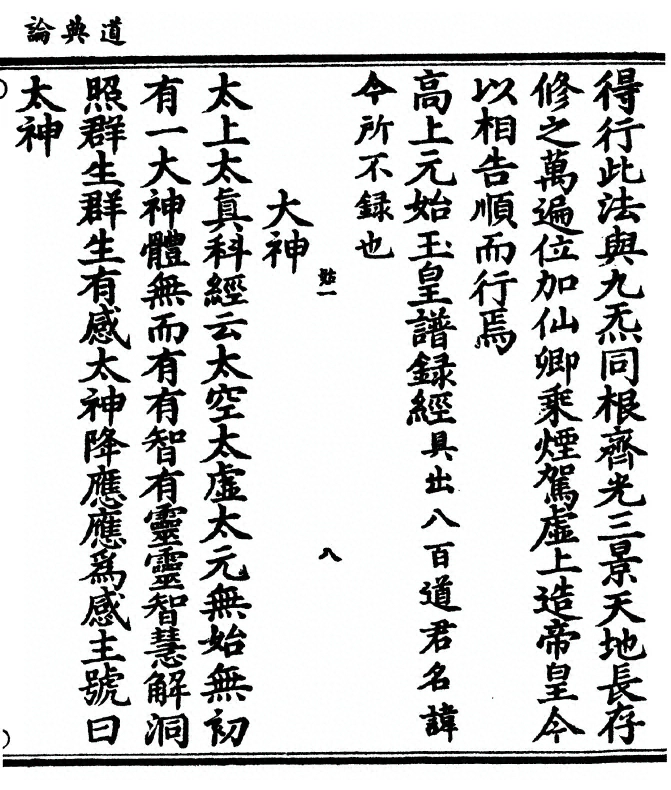 道典論
得行此法與九炁同根齊光三景天地長存
修之萬遍位加仙卿乘煙駕虛上造帝皇今
以相告順而行焉
高上元始玉皇譜録經具出八百道君名諱
今所不録也
始一
八
大神
太上太真科經云太空太虛太元無始無初
有一大神體無而有有智有靈靈智慧解洞
照群生群生有感太神降應應為感主號曰
太神